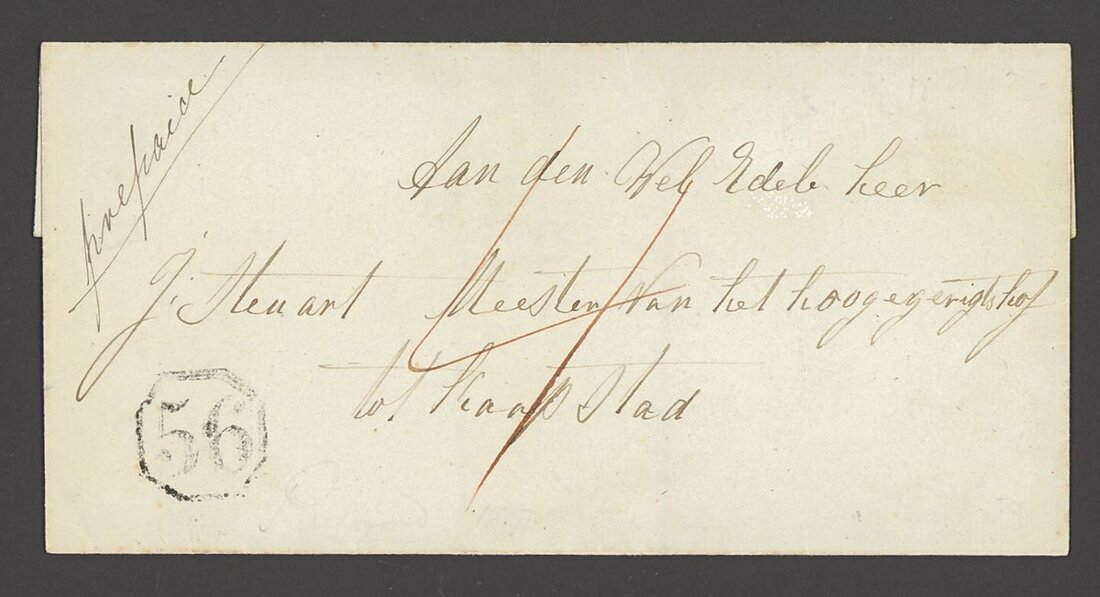 prepaid
Aan den Wel Edele heer
J: Steuart Meester van het hoogegerigtshof
tot Kaapstad
56